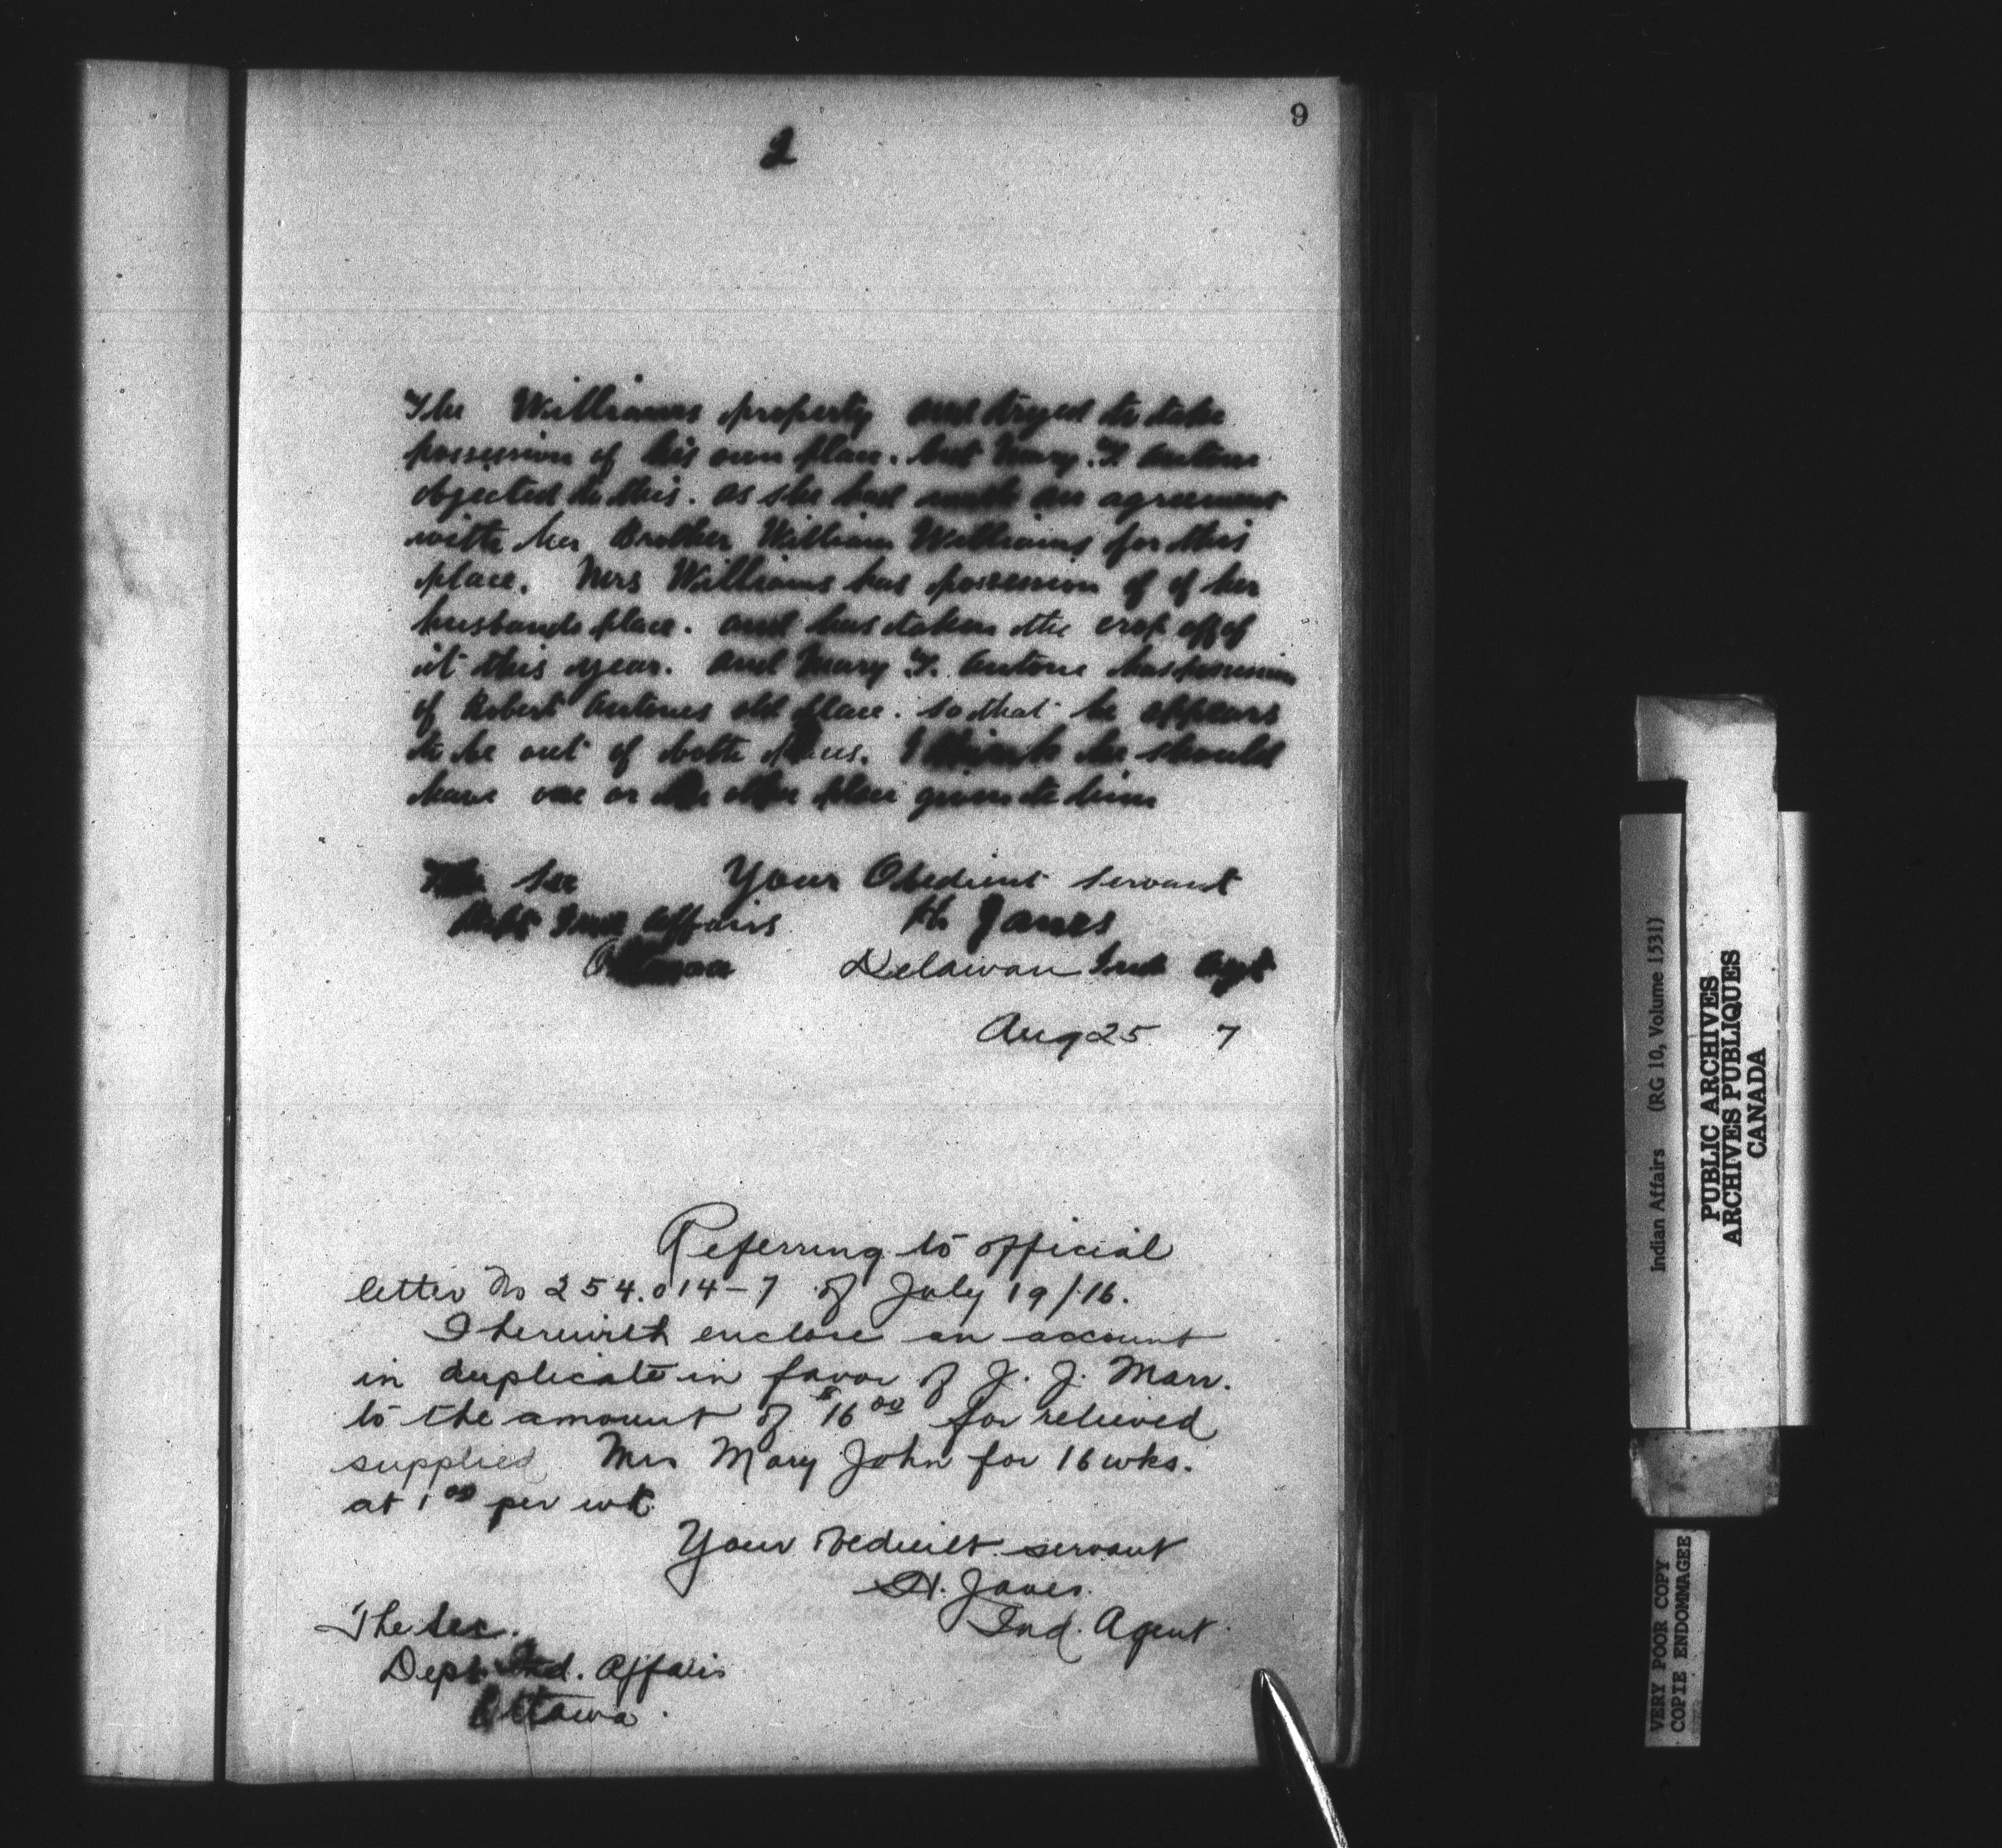 9
2
The Williams property and tryed to take
possession of his own place. but Mary. F. Antone
objected to this. as she had made an agreement
with her Brother William Williams for this
place. Mrs Williams has possession of of her
husbands place. and has taken the crop off of
it this year. and Mary F. Antone has possession
of Robert Antones old place. so that he appears
to be out of both places. I think he should
have one or the other place given to him
The Sec Your Obedient servant
Dept Ind Affairs H. Janes
Ottawa Delawan Ind Agt
Aug 25 7
Referring to official
letter No 254.014-7 of July 19/16.
I herewith enclose an account
in duplicate in favor of J. J. Marr.
to the amount of $16 00 for relieved
supplied Mrs Mary John for 16 wks.
at 1 00 per wk
Your obedient servant
H. Janes.
The Sec. Ind. Agent
Dept. Ind. Affairs
Ottawa.
Indian Affairs (RG 10, Volume 1531)
PUBLIC ARCHIVES
ARCHIVES PUBLIQUES
CANADA
VERY POOR COPY
COPIE ENDOMMAGEE